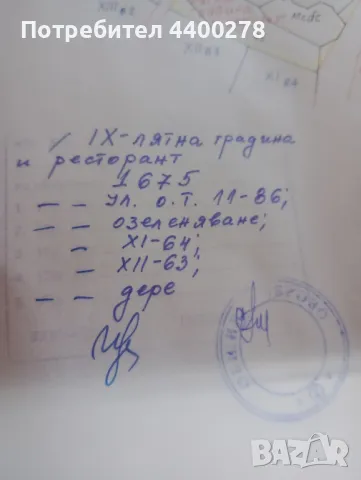 Потребител 4400278
IX-лятна градина
и ресторант
1675
1 — — ул. о.т. 11-86;
2 — — озеленяване;
— — XI-64;
— — XII-63;
5 — — дере
BAZAR